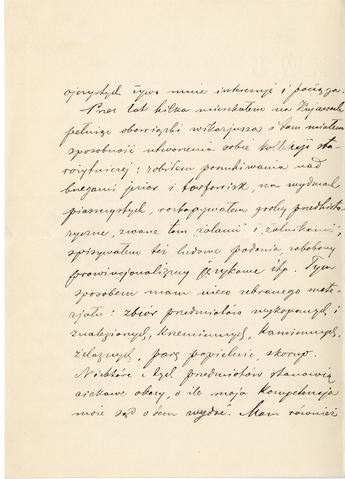 ojczystych żywo mnie interesuje i pociąga.
Przez lat kilka mieszkałem na Kujawach
pełniąc obowiązki wikarjusza i tam miałem
sposobność utworzenia sobie kolekcji sta-
rożytniczej: robiłem poszukiwania nad
brzegami jezior i torfowisk, na wydmach
piaszczystych, rozkopywałem groby przedhisto-
ryczne, zwane tam żalami i żalnikami,
spisywałem też ludowe podania, zabobony
prowincjonalizmy językowe itp. Tym
sposobem mam nieco zebranego mate-
rjału: zbiór przedmiotów wykopanych i
znalezionych, krzemiennych, kamiennych,
żelaznych, parę popielnic, skorup.
Niektóre z tych przedmiotów stanowią
ciekawe okazy, o ile moja kompetencja
może sąd o tem wydać. Mam również